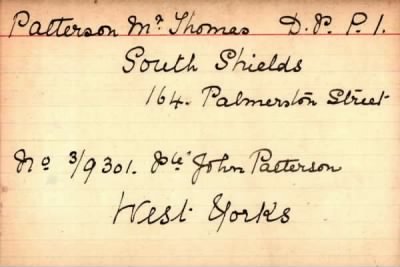 Patterson Mr. Thomas D. P. P. 1.
South Shields
164. Palmerston Street
No 3/9301. Pte John Patterson
West Yorks